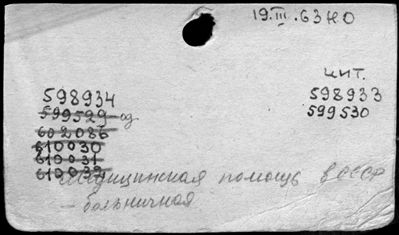 19.III.63 НО
чит.
598934 598933
599529 од 599530
602086
610030
610031
610032
Медицинская помощь в СССР
- больничная